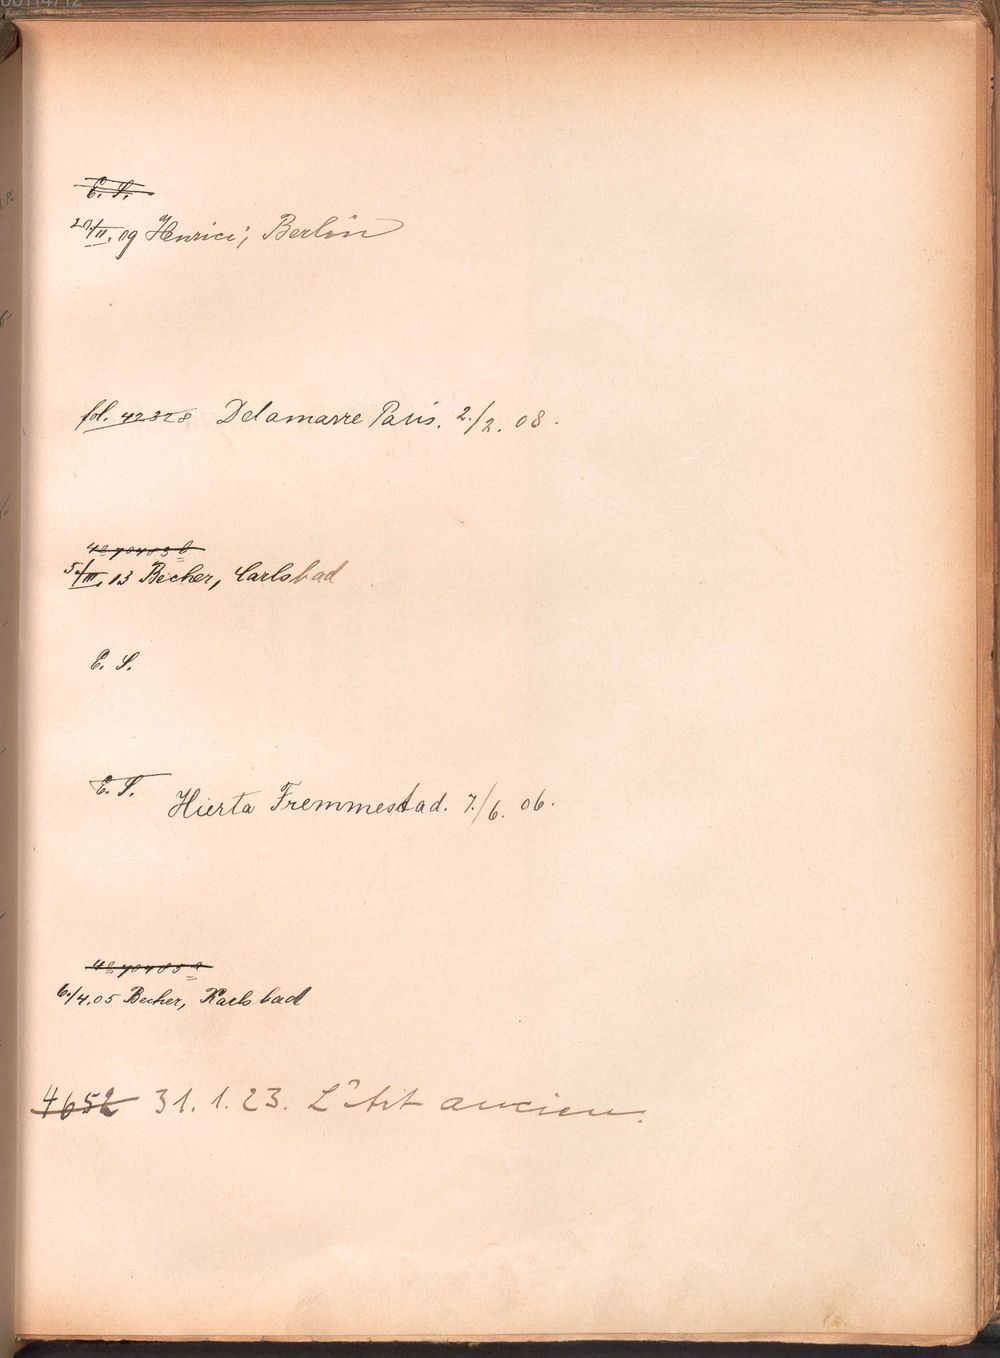 E. S.
20/II. 09 Henrici, Berlin
fol. 42328 Delamarre Paris. 2./2. 08.
4º 70483 b
5./III. 13 Becher, Carlsbad
E. S.
E. S.
Hierta Fremmestad. 7./6. 06.
4º 70485 a
6./4.05 Becher, Karlsbad
4652 31. 1. 23. L'Art ancien.